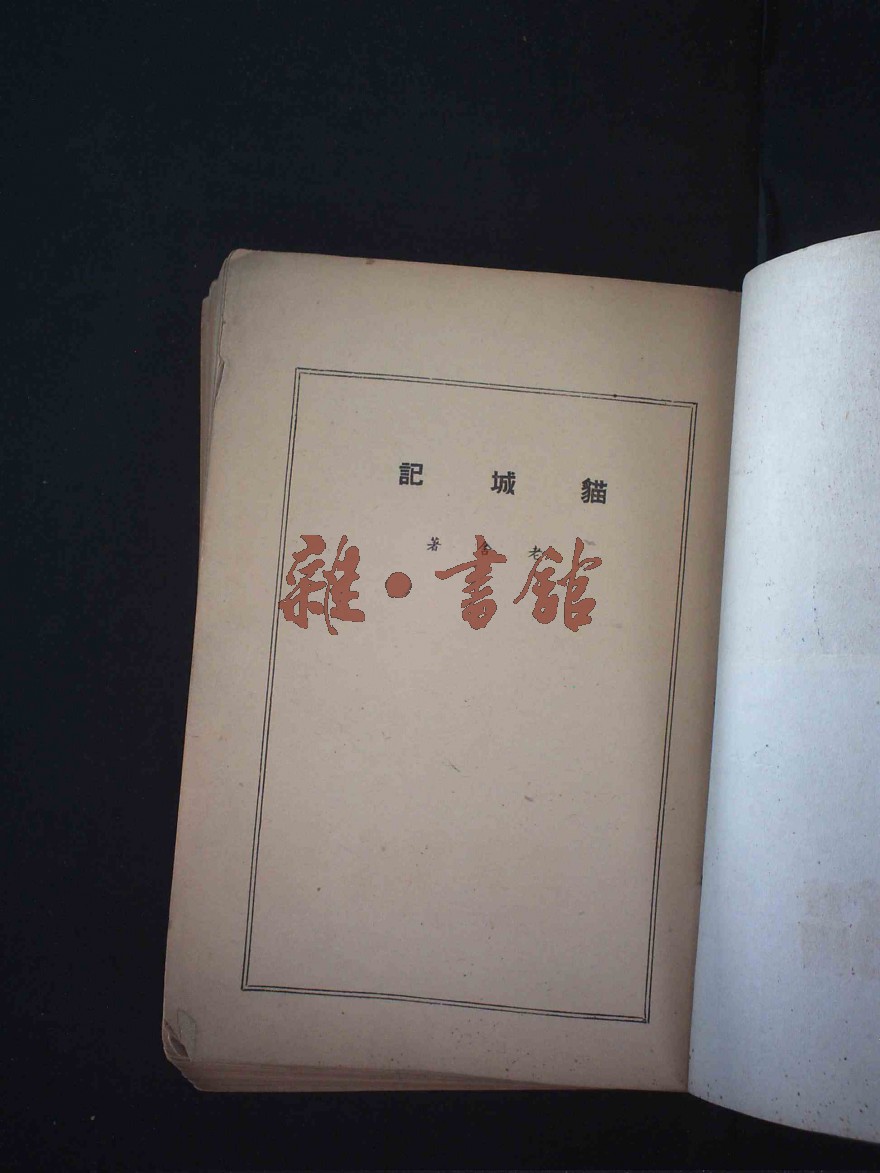 貓城記
老舍著
雜·書館